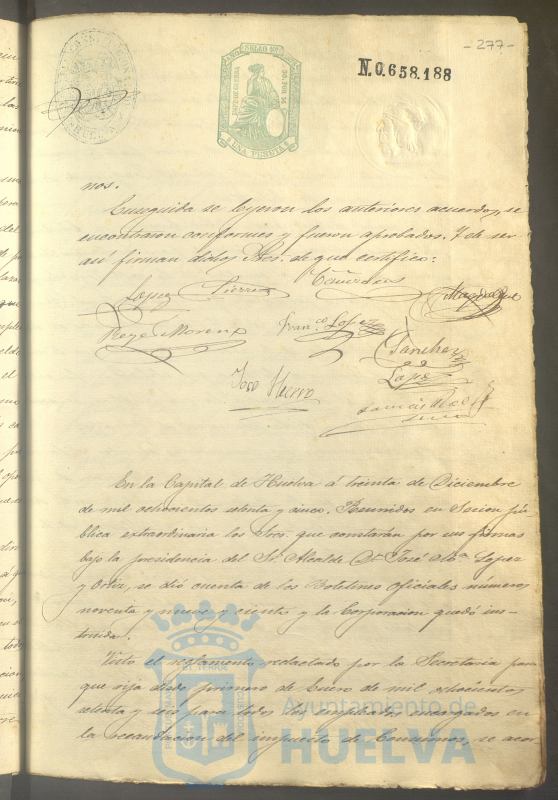 -277-
N.0.658.188
UNA PESETA
nos.
Enseguida se leyeron los anteriores acuerdos, se
encontraron conformes y fueron aprobados. Y de ser
así firman dichos Sres. de que certifico:
Lopez
Reyes Moreno
Franco Lopez
Sanchez
Lopez
José Hierro
En la Capital de Huelva á treinta de Diciembre
de mil ochocientos setenta y cinco. Reunidos en Sesion pú-
blica extraordinaria los Sres. que constarán por sus firmas
bajo la presidencia del Sr. Alcalde Dn. José Ma. Lopez
y Ortiz, se dió cuenta de los Boletines Oficiales números
noventa y nueve y ciento y la Corporacion quedó ins-
truida.
Visto el reglamento redactado por la Secretaria para
que rija desde primero de Enero de mil ochocientos
setenta y seis para todos los empleados encargados en
la recaudacion del impuesto de Consumos, se acor
Ayuntamiento de
HUELVA